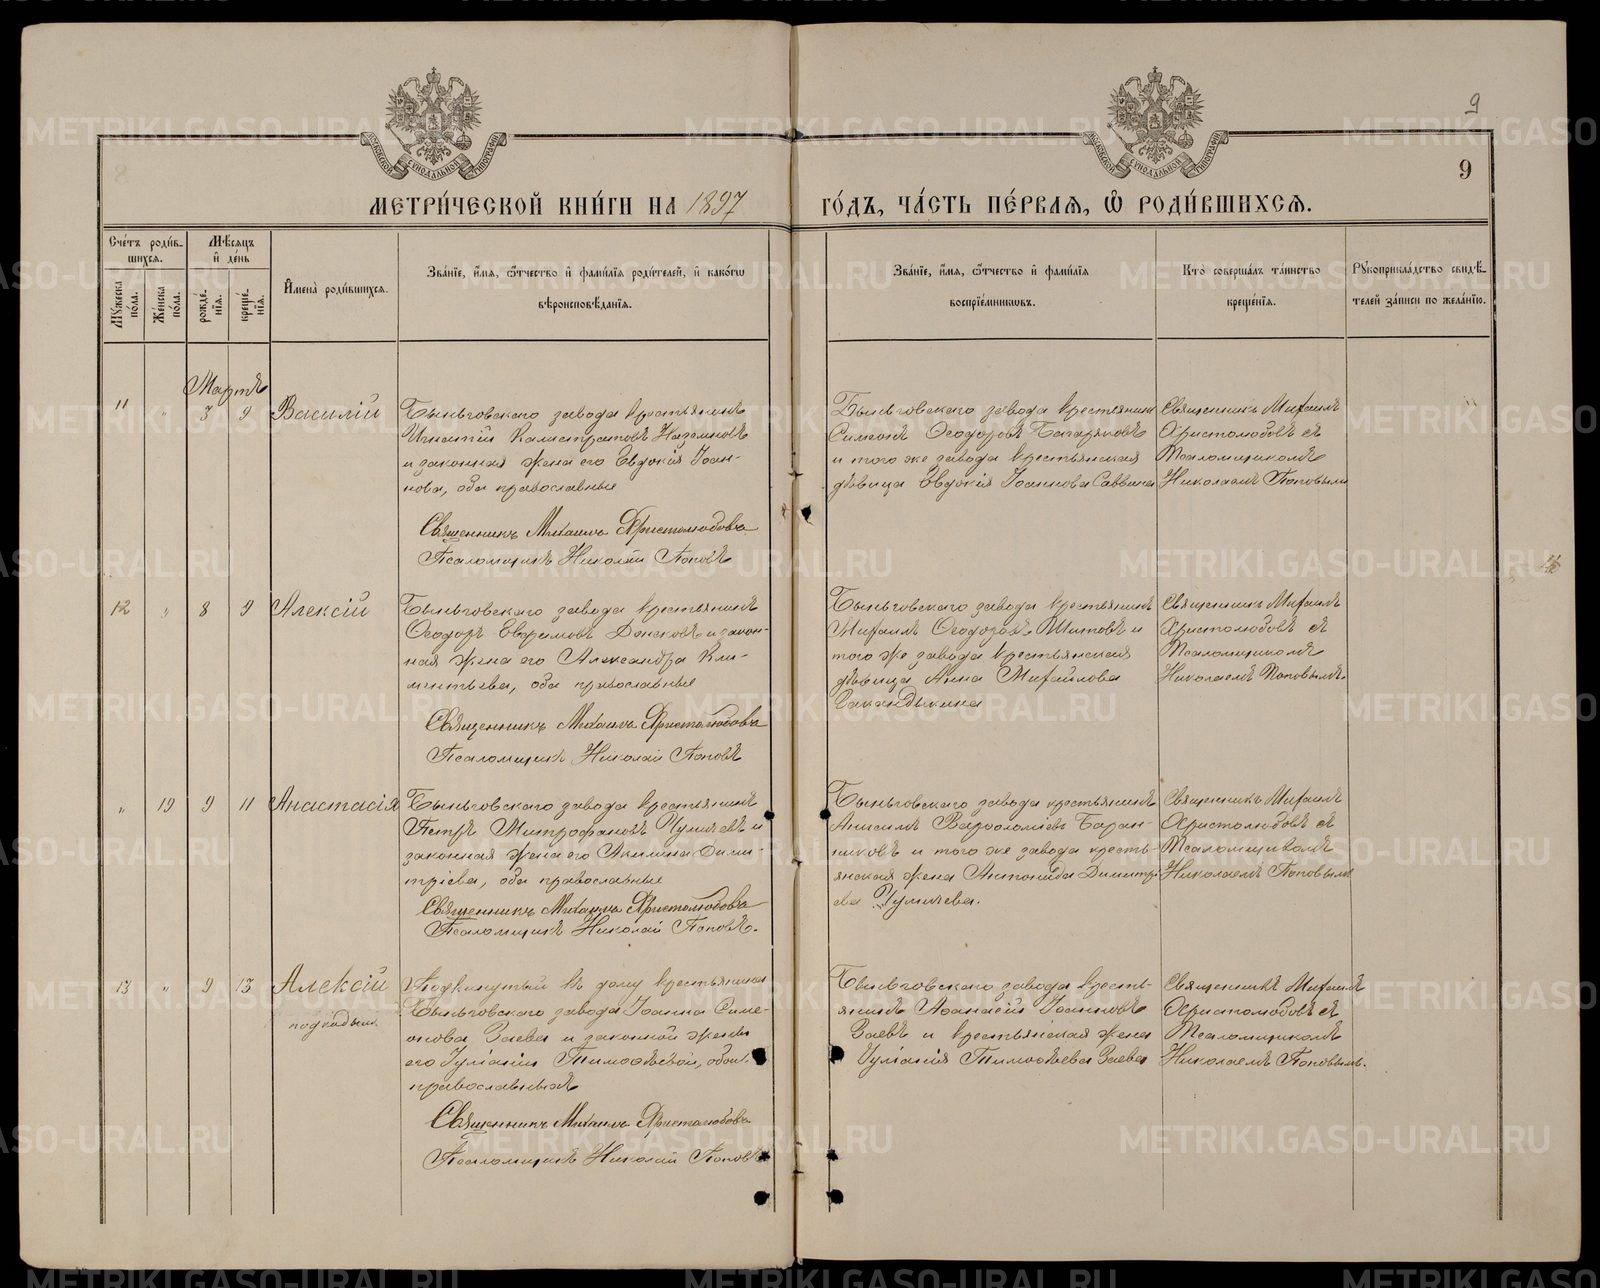 9
9
8
МОСКОВСКОЙ СѴНОДАЛЬНОЙ ТИПОГРАФІИ
МОСКОВСКОЙ СѴНОДАЛЬНОЙ ТИПОГРАФІИ
МЕТРИ́ЧЕСКОЙ КНИ́ГИ НА 1897 ГО́ДЪ, ЧА́СТЬ ПЕ́РВАЯ, Ѡ҆ РОДИ́ВШИХСЯ.
Сче́тъ роди́в-
шихся.
Му́жеска по́ла.
Же́нска по́ла.
Мѣ́сяцъ и҆ де́нь
рожде́нїя.
креще́нїя.
И҆мена̀ роди́вшихся.
Зва́нїе, и҆́мя, ѻ҆́тчество и҆ фами́лїя роди́телей, и҆ како́гѡ
вѣроисповѣ́данїя.
Зва́нїе, и҆́мя, ѻ҆́тчество и҆ фами́лїя
воспрїе́мниковъ.
Кто̀ соверша́лъ та́инство
креще́нїя.
Рꙋкоприкла́дство свидѣ́-
телей за́писи по жела́нїю.
Мартъ
11 " 3 9 Василій
Быньговскаго завода крестьянинъ
Игнатій Калистратовъ Наземновъ
и законная жена его Евдокія Іоан-
нова, оба православные
Священникъ Михаилъ Христолюбовъ
Псаломщикъ Николай Поповъ
Быньговскаго завода крестьянинъ
Симеонъ Ѳеодоровъ Багаряковъ
и того же завода крестьянская
дѣвица Евдокія Іоаннова Саввина
Священникъ Михаилъ
Христолюбовъ съ
Псаломщикомъ
Николаемъ Поповымъ
12 " 8 9 Алексій
Быньговскаго завода крестьянинъ
Ѳеодоръ Евфимовъ Донсковъ и закон-
ная жена его Александра Кли-
ментьева, оба православные
Священникъ Михаилъ Христолюбовъ
Псаломщикъ Николай Поповъ
Быньговскаго завода крестьянинъ
Михаилъ Ѳеодоровъ Шитовъ и
того же завода крестьянская
дѣвица Анна Михайлова
Священникъ Михаилъ
Христолюбовъ съ
Псаломщикомъ
Николаемъ Поповымъ.
" 19 9 11 Анастасія
Быньговскаго завода крестьянинъ
Петръ Митрофановъ и
законная жена его Акилина Дими-
тріева, оба православные
Священникъ Михаилъ Христолюбовъ
Псаломщикъ Николай Поповъ.
Быньговскаго завода крестьянинъ
Анисимъ Варѳоломіевъ Баран-
никовъ и того же завода кресть-
янская жена Антонида Димитрі-
ева
Священникъ Михаилъ
Христолюбовъ съ
Псаломщикомъ
Николаемъ Поповымъ
13 " 9 13 Алексій
подкидышъ
Подкинутый къ дому крестьянина
Быньговскаго завода Іоанна Симе-
онова Заева и законной жены
его Іуліаніи Тимоѳеевой, обои
православныхъ
Священникъ Михаилъ Христолюбовъ
Псаломщикъ Николай Поповъ
Быньговскаго завода кресть-
янинъ Аѳанасій Іоанновъ
Заевъ и крестьянская жена
Іуліанія Тимоѳеева Заева
Священникъ Михаилъ
Христолюбовъ съ
Псаломщикомъ
Николаемъ Поповымъ.
METRIKI.GASO-URAL.RU